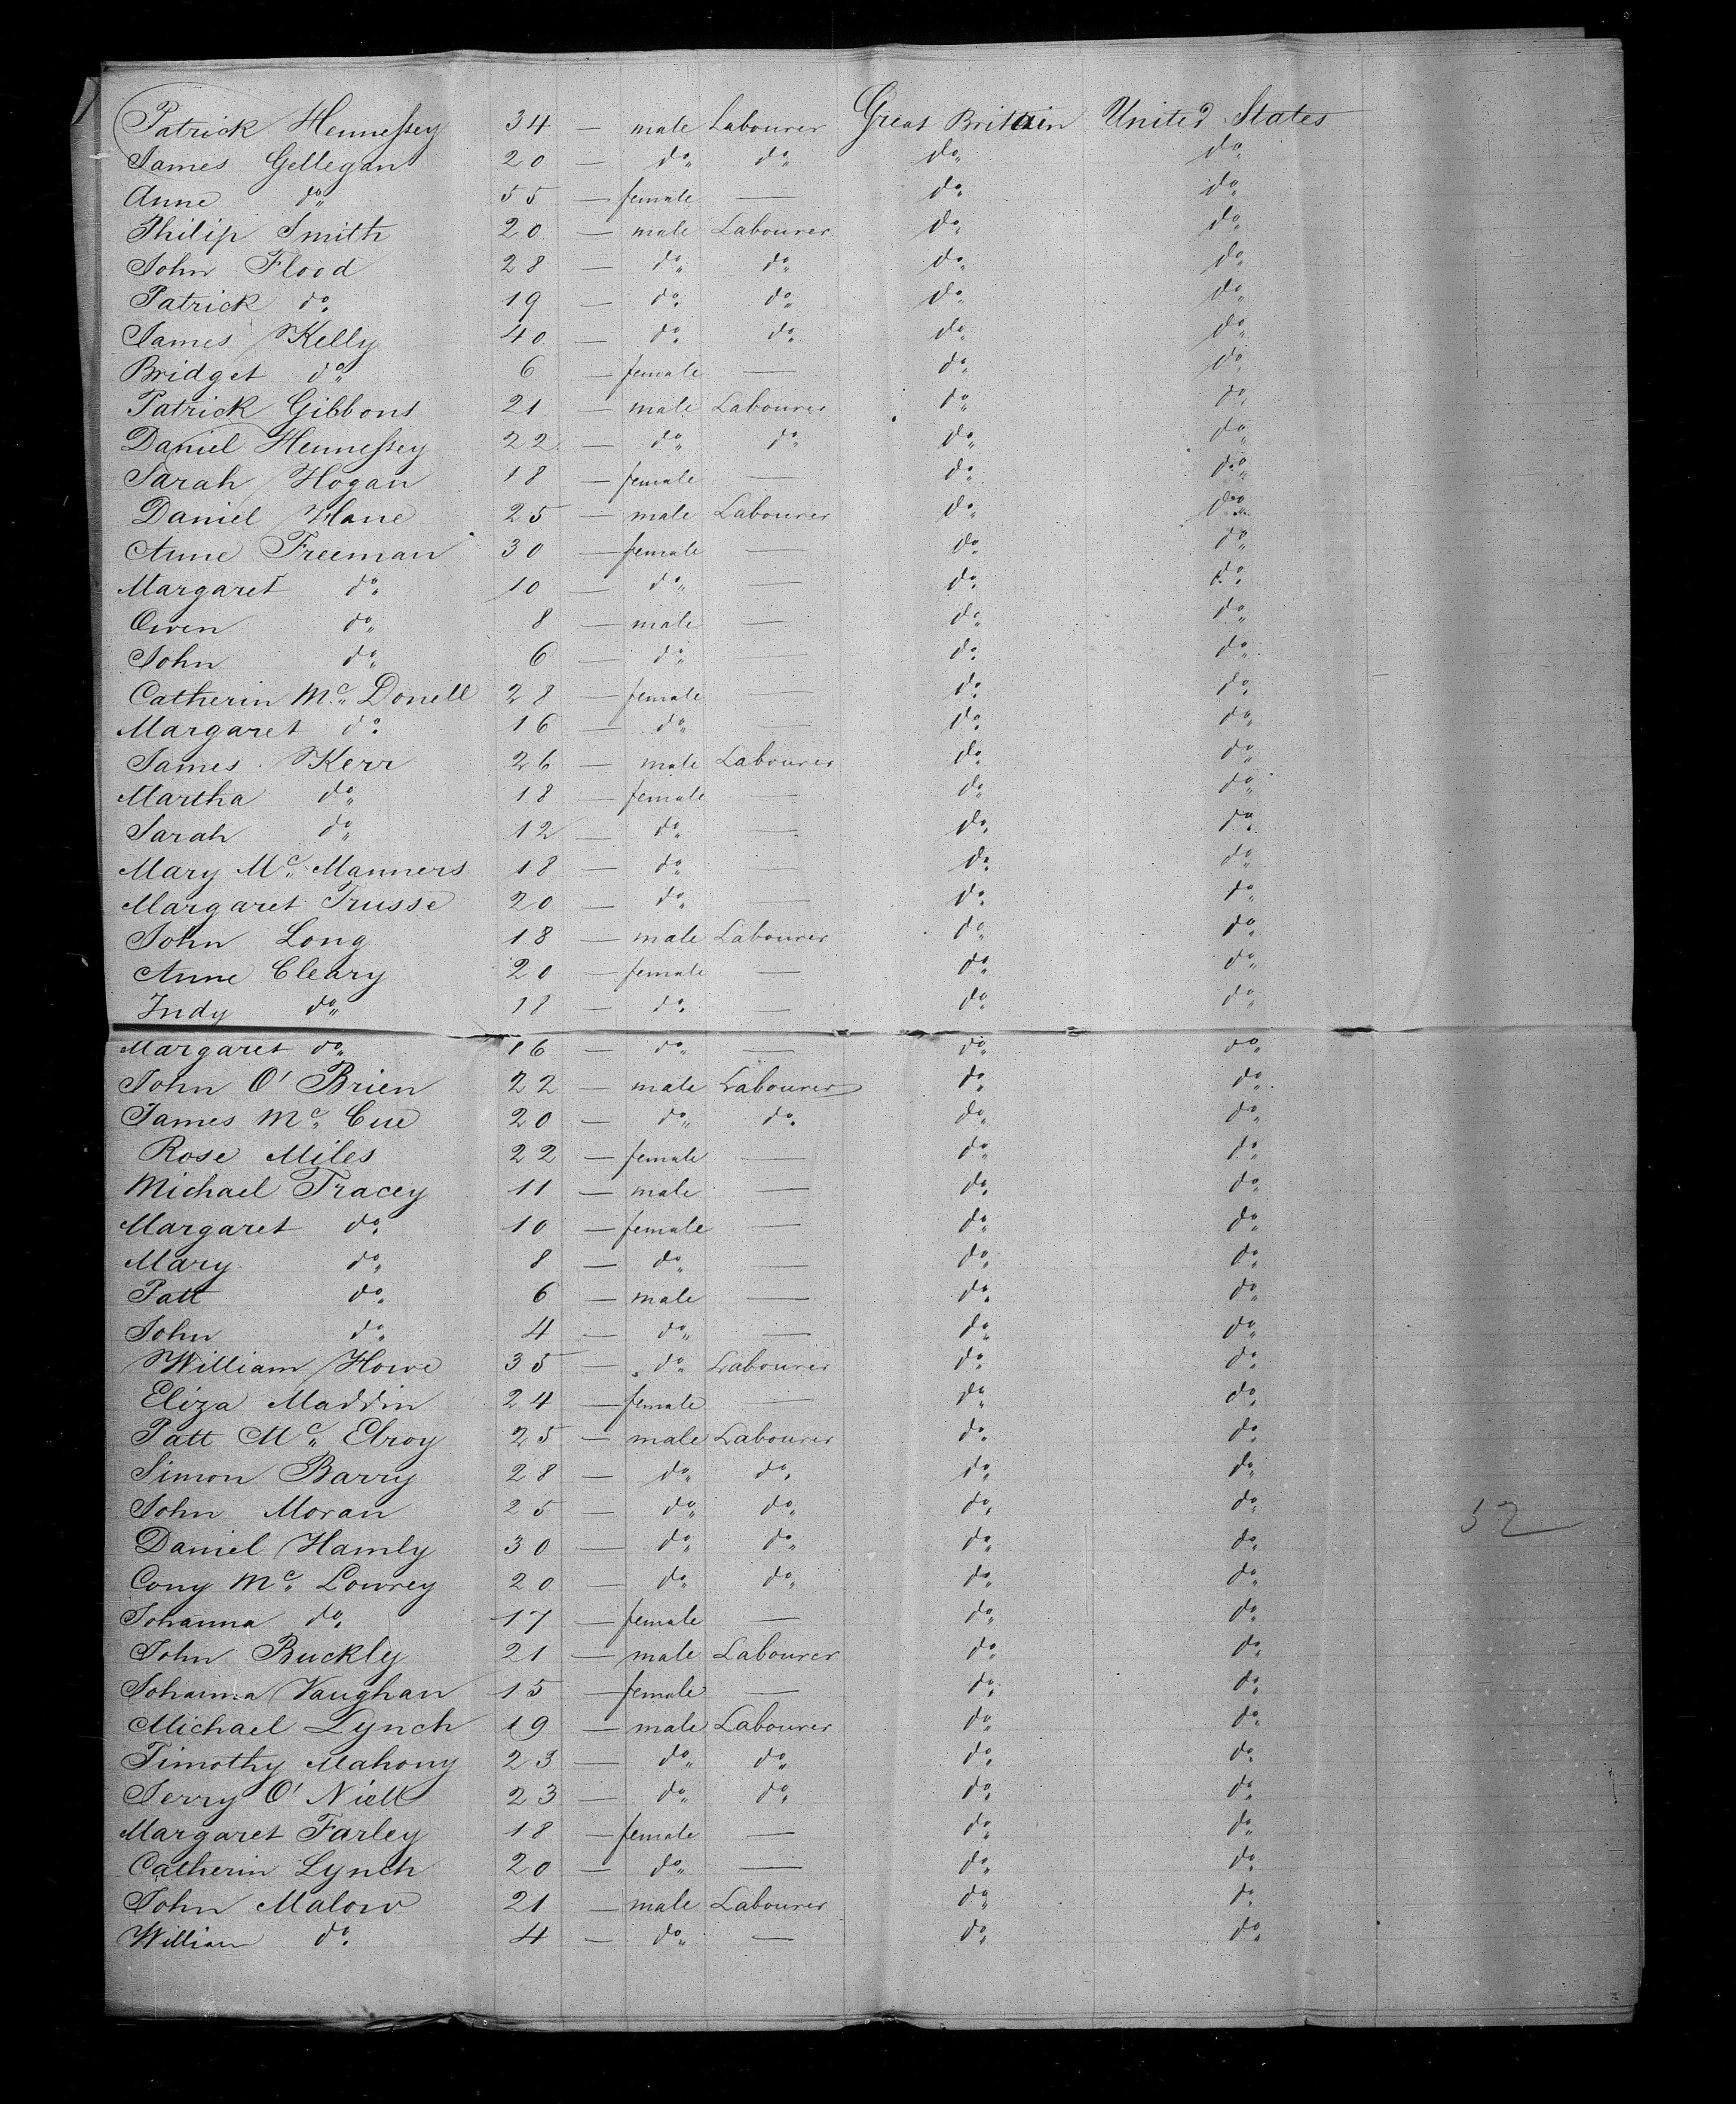 Patrick Hennessey 34 — male Labourer Great Britain United States
James Gellegan 20 — do do do do
Anne do 55 — female — do do
Philip Smith 20 — male Labourer do do
John Flood 28 — do do do do
Patrick do 19 — do do do do
James Kelly 40 — do do do do
Bridget do 6 — female — do do
Patrick Gibbons 21 — male Labourer do do
Daniel Hennessey 22 — do do do do
Sarah Hogan 18 — female — do do
Daniel Hane 25 — male Labourer do do
Anne Freeman 30 — female — do do
Margaret do 10 — do — do do
Owen do 8 — male — do do
John do 6 — do — do do
Catherin Mc Donell 28 — female — do do
Margaret do 16 — do — do do
James Kerr 26 — male Labourer do do
Martha do 18 — female — do do
Sarah do 12 — do — do do
Mary Mc Manners 18 — do — do do
Margaret Trusse 20 — do — do do
John Long 18 — male Labourer do do
Anne Cleary 20 — female — do do
Judy do 18 — do — do do
Margaret do 16 — do — do do
John O' Brien 22 — male Labourer do do
James Mc Cue 20 — do do do do
Rose Miles 22 — female — do do
Michael Tracey 11 — male — do do
Margaret do 10 — female — do do
Mary do 8 — do — do do
Patt do 6 — male — do do
John do 4 — do — do do
William Howe 35 — do Labourer do do
Eliza Maddin 24 — female — do do
Patt Mc Elroy 25 — male Labourer do do
Simon Barry 28 — do do do do
John Moran 25 — do do do do
52
Daniel Hamly 30 — do do do do
Cony Mc Lowrey 20 — do do do do
Johanna do 17 — female — do do
John Buckly 21 — male Labourer do do
Johanna Vaughan 15 — female — do do
Michael Lynch 19 — male Labourer do do
Timothy Mahony 23 — do do do do
Jerry O' Niell 23 — do do do do
Margaret Farley 18 — female — do do
Catherin Lynch 20 — do — do do
John Malow 21 — male Labourer do do
William do 4 — do — do do